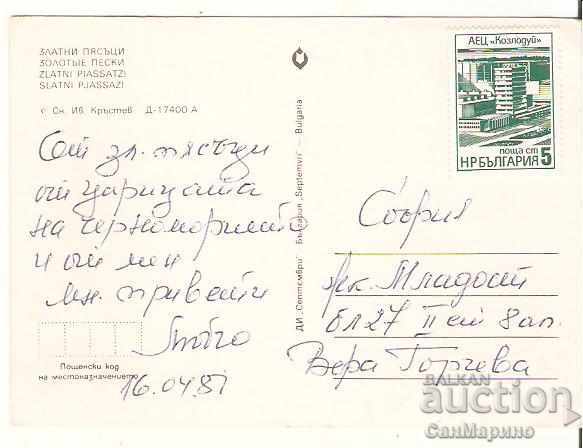 ЗЛАТНИ ПЯСЪЦИ
ЗОЛОТЫЕ ПЕСКИ
ZLATNI PIASSATZI
SLATNI PJASSAZI
Сн. Ив. Кръстев Д-17400 А
От зл. пясъци
от царицата
на черноморието
и от мен
мн. привети
16.04.81
Пощенски код
на местоназначението
ДИ „Септември" България „Septemvri" – Bulgaria
АЕЦ „Козлодуй"
поща ст
НР БЪЛГАРИЯ 5
София
жк. Младост
бл 27 II ет 8 ап.
Вера Гочева
BALKAN
auction
СанМарино